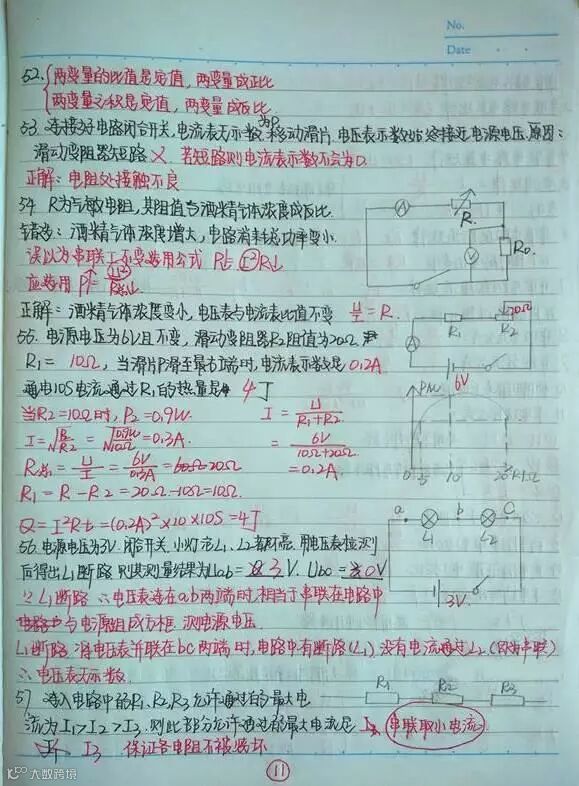 No.
Date
52. 两变量的比值是定值，两变量成正比
两变量之积是定值，两变量成反比
53. 连接好电路闭合开关，电流表无示数，移动滑片P，电压表示数始终接近电源电压，原因：
滑动变阻器短路 ✗. 若短路则电流表示数不会为0.
正解：电阻处接触不良
54. R为气敏电阻，其阻值与酒精气体浓度成反比.
错者：酒精气体浓度增大，电路消耗总功率变小.
误以为串联I不变 用公式 P=I²R↓
应用 P↑=
正解：酒精气体浓度变小，电压表与电流表比值不变 U/I = R.
A
R
V
R₀
55. 电源电压为6V且不变，滑动变阻器R₂阻值为20Ω
R₁ = 10Ω，当滑片P滑至最右端时，电流表示数是0.2A
通电10S电流通过R₁的热量是 4J
当R₂=10Ω时，P₂=0.9W.
I=√(P₂/R₂) = √(0.9W/10Ω)=0.3A.
R总 = U/I = 6V/0.3A = 20Ω
R₁ = R-R₂ = 20Ω-10Ω=10Ω.
I = U/(R₁+R₂)
= 6V/(10Ω+20Ω)
= 0.2A.
Q=I²Rt=(0.2A)²×10×10S=4J
A
R₁
R₂
20Ω
6V
P/W
0 5 10 20 R/Ω
56. 电源电压为3V. 闭合开关，小灯泡L₁、L₂都不亮. 用电压表检测
后得出L₁断路，则其测量结果为Uab=3V. Ubc=0V
∵L₁断路 ∴电压表连在ab两端时，相当于串联在电路中
与电源组成方框，测电源电压.
L₁断路，将电压表并联在bc两端时，电路中有断路(L₁)，没有电流通过L₂
∴电压表无示数.
a b c
L₁ L₂
3V
57. 接入电路中的R₁、R₂、R₃允许通过的最大电
流为I₁>I₂>I₃，则此部分允许通过的最大电流是 串联取小电流
I₃ 保证各电阻不被烧坏
R₁ R₂ R₃
11
大数跨境